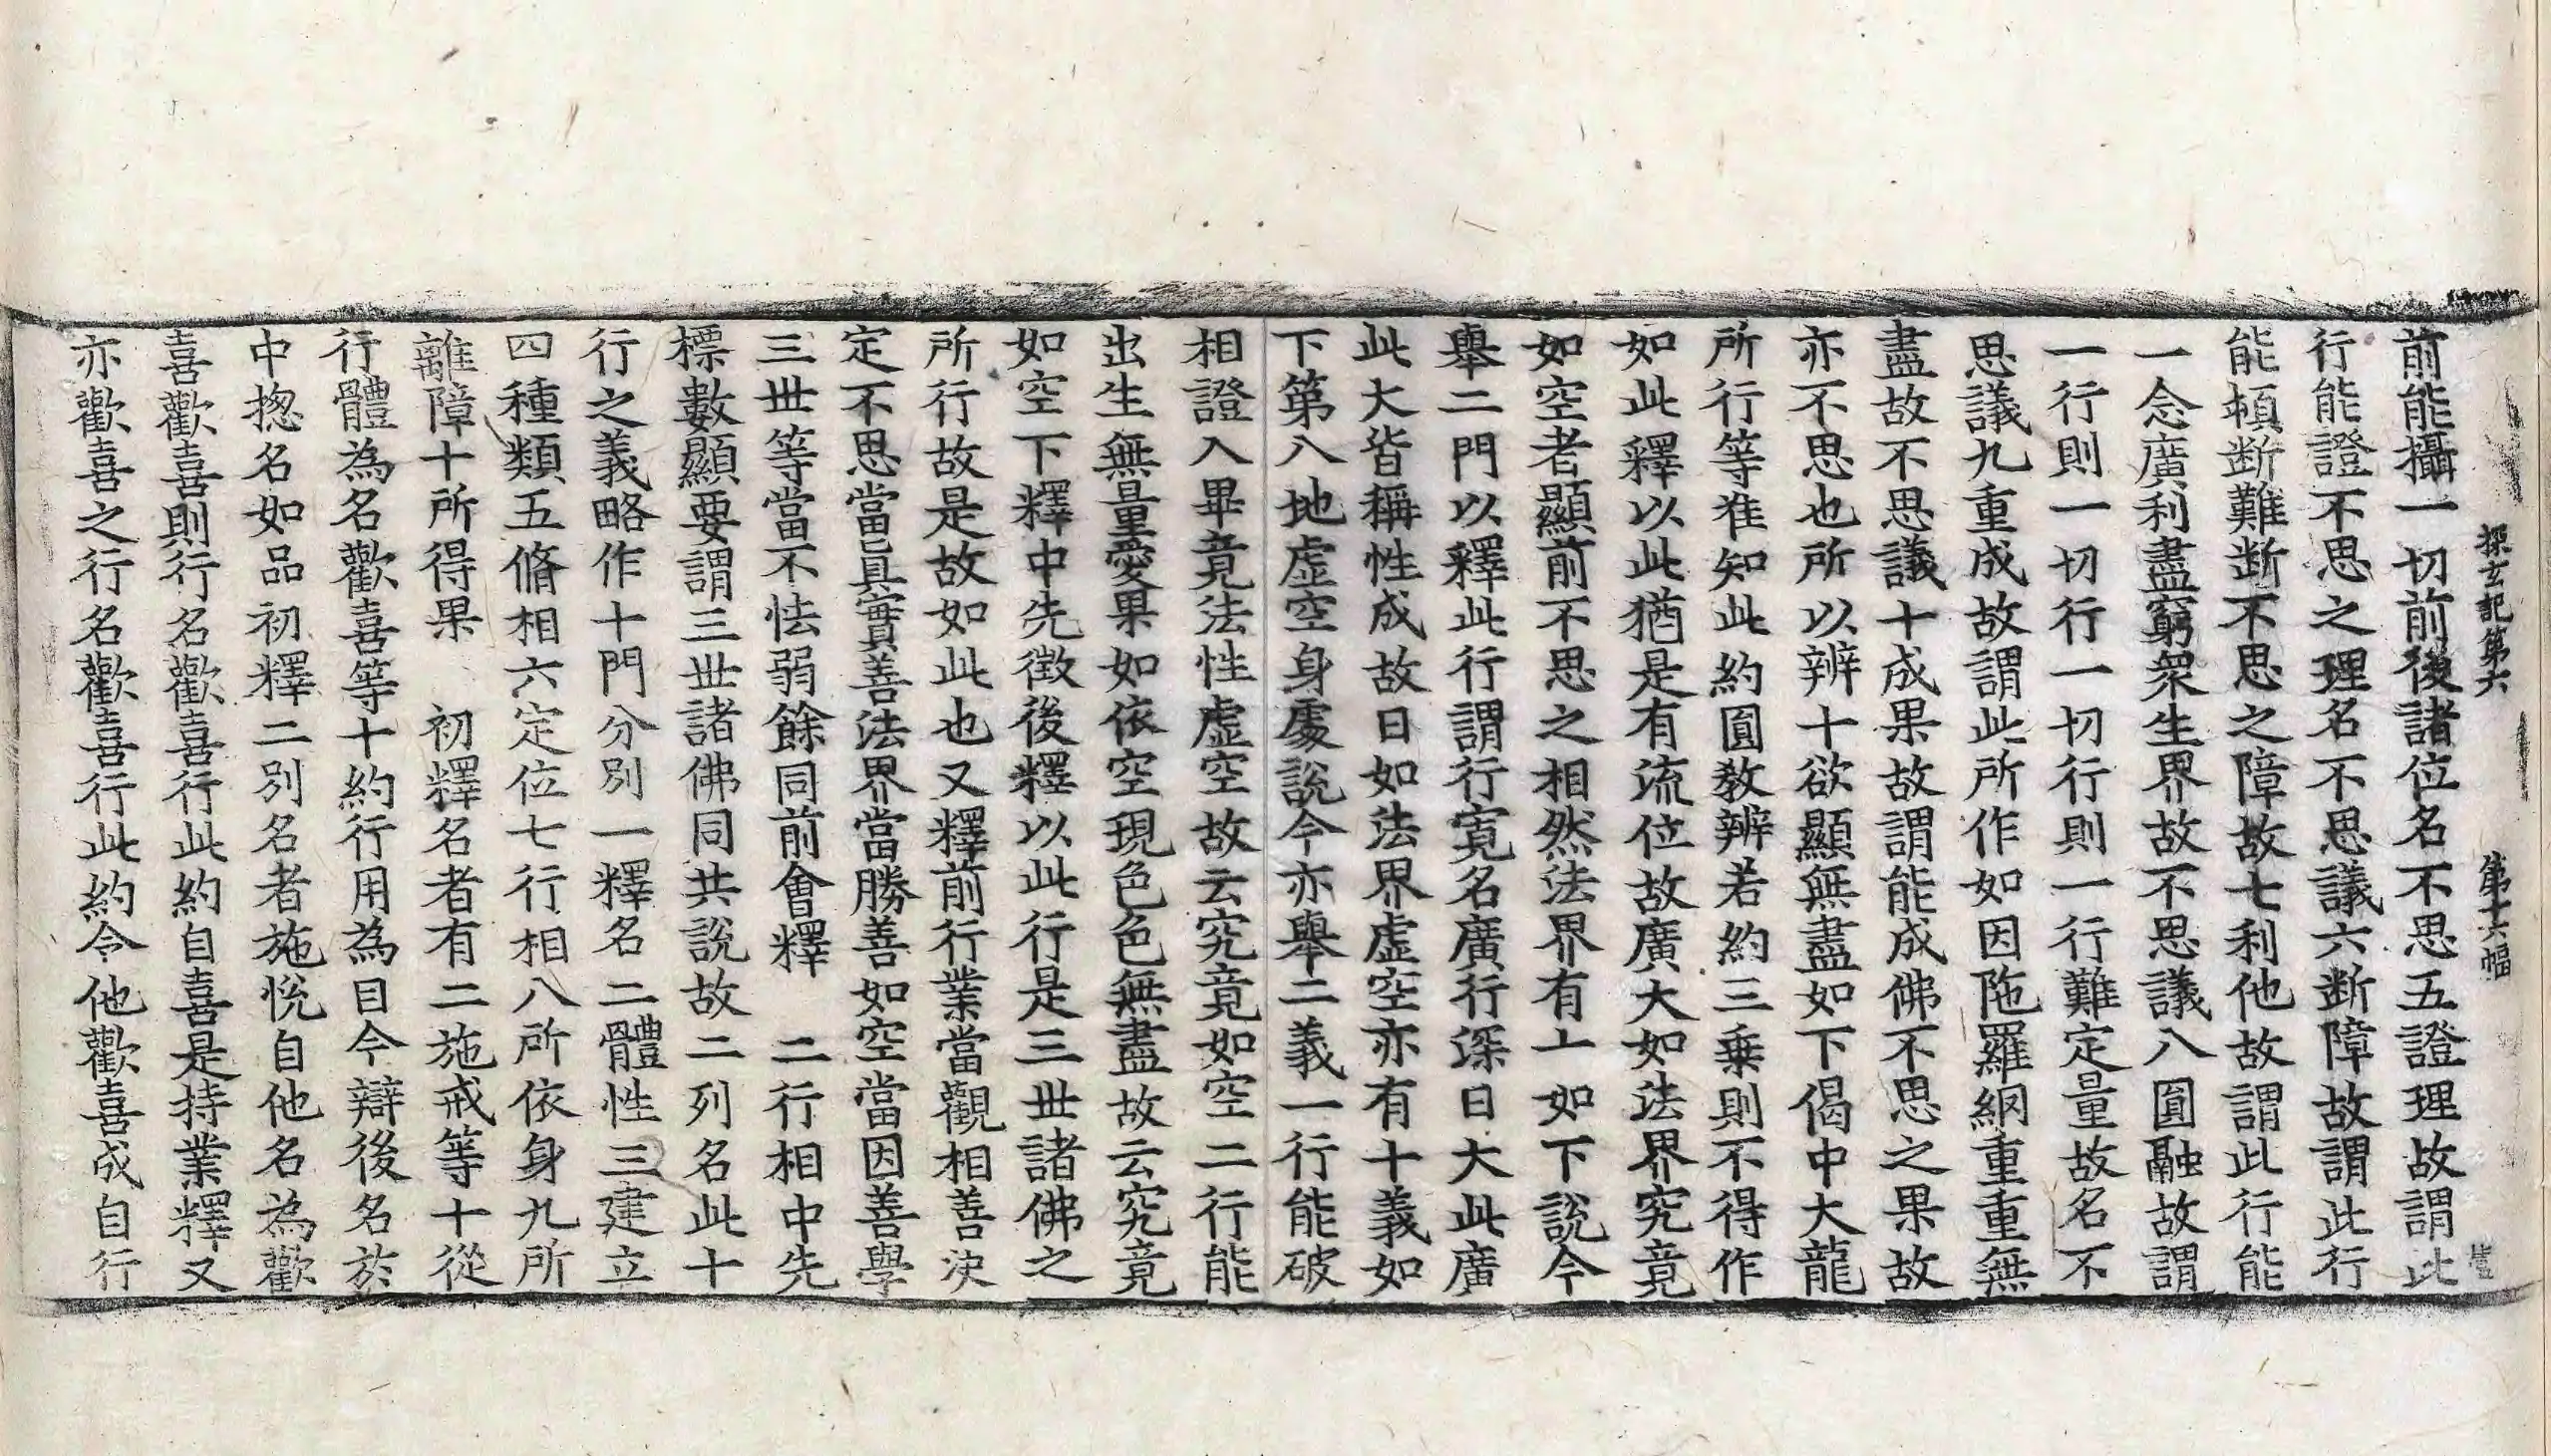 探玄記第六 第十六幅
前能攝一切前後諸位名不思五證理故謂此
行能證不思之理名不思議六断障故謂此行
能頓断難断不思之障故七利他故謂此行能
一念廣利盡窮衆生界故不思議八圓融故謂
一行則一切行一切行則一行難定量故名不
思議九重成故謂此所作如因陁羅網重重無
盡故不思議十成果故謂能成佛不思之果故
亦不思也所以辨十欲顯無盡如下偈中大龍
所行等准知此約圓教辨若約三乗則不得作
如此釋以此猶是有流位故廣大如法界究竟
如空者顯前不思之相然法界有二如下說今
舉二門以釋此行謂行寬名廣行深曰大此廣
此大皆稱性成故曰如法界虛空亦有十義如
下第八地虛空身處說今亦舉二義一行能破
相證入畢竟法性虛空故云究竟如空二行能
出生無量愛果如依空現色色無盡故云究竟
如空下釋中先徵後釋以此行是三世諸佛之
所行故是故如此也又釋前行業當觀相善決
定不思當眞實善法界當勝善如空當因善學
三世等當不怯弱餘同前會釋 二行相中先
標數顯要謂三世諸佛同共說故二列名此十
行之義略作十門分別一釋名二體性三建立
四種類五脩相六定位七行相八所依身九所
離障十所得果 初釋名者有二施戒等十從
行體為名歡喜等十約行用為目今辯後名於
中揔名如品初釋二別名者施悅自他名為歡
喜歡喜則行名歡喜行此約自喜是持業釋又
亦歡喜之行名歡喜行此約令他歡喜成自行